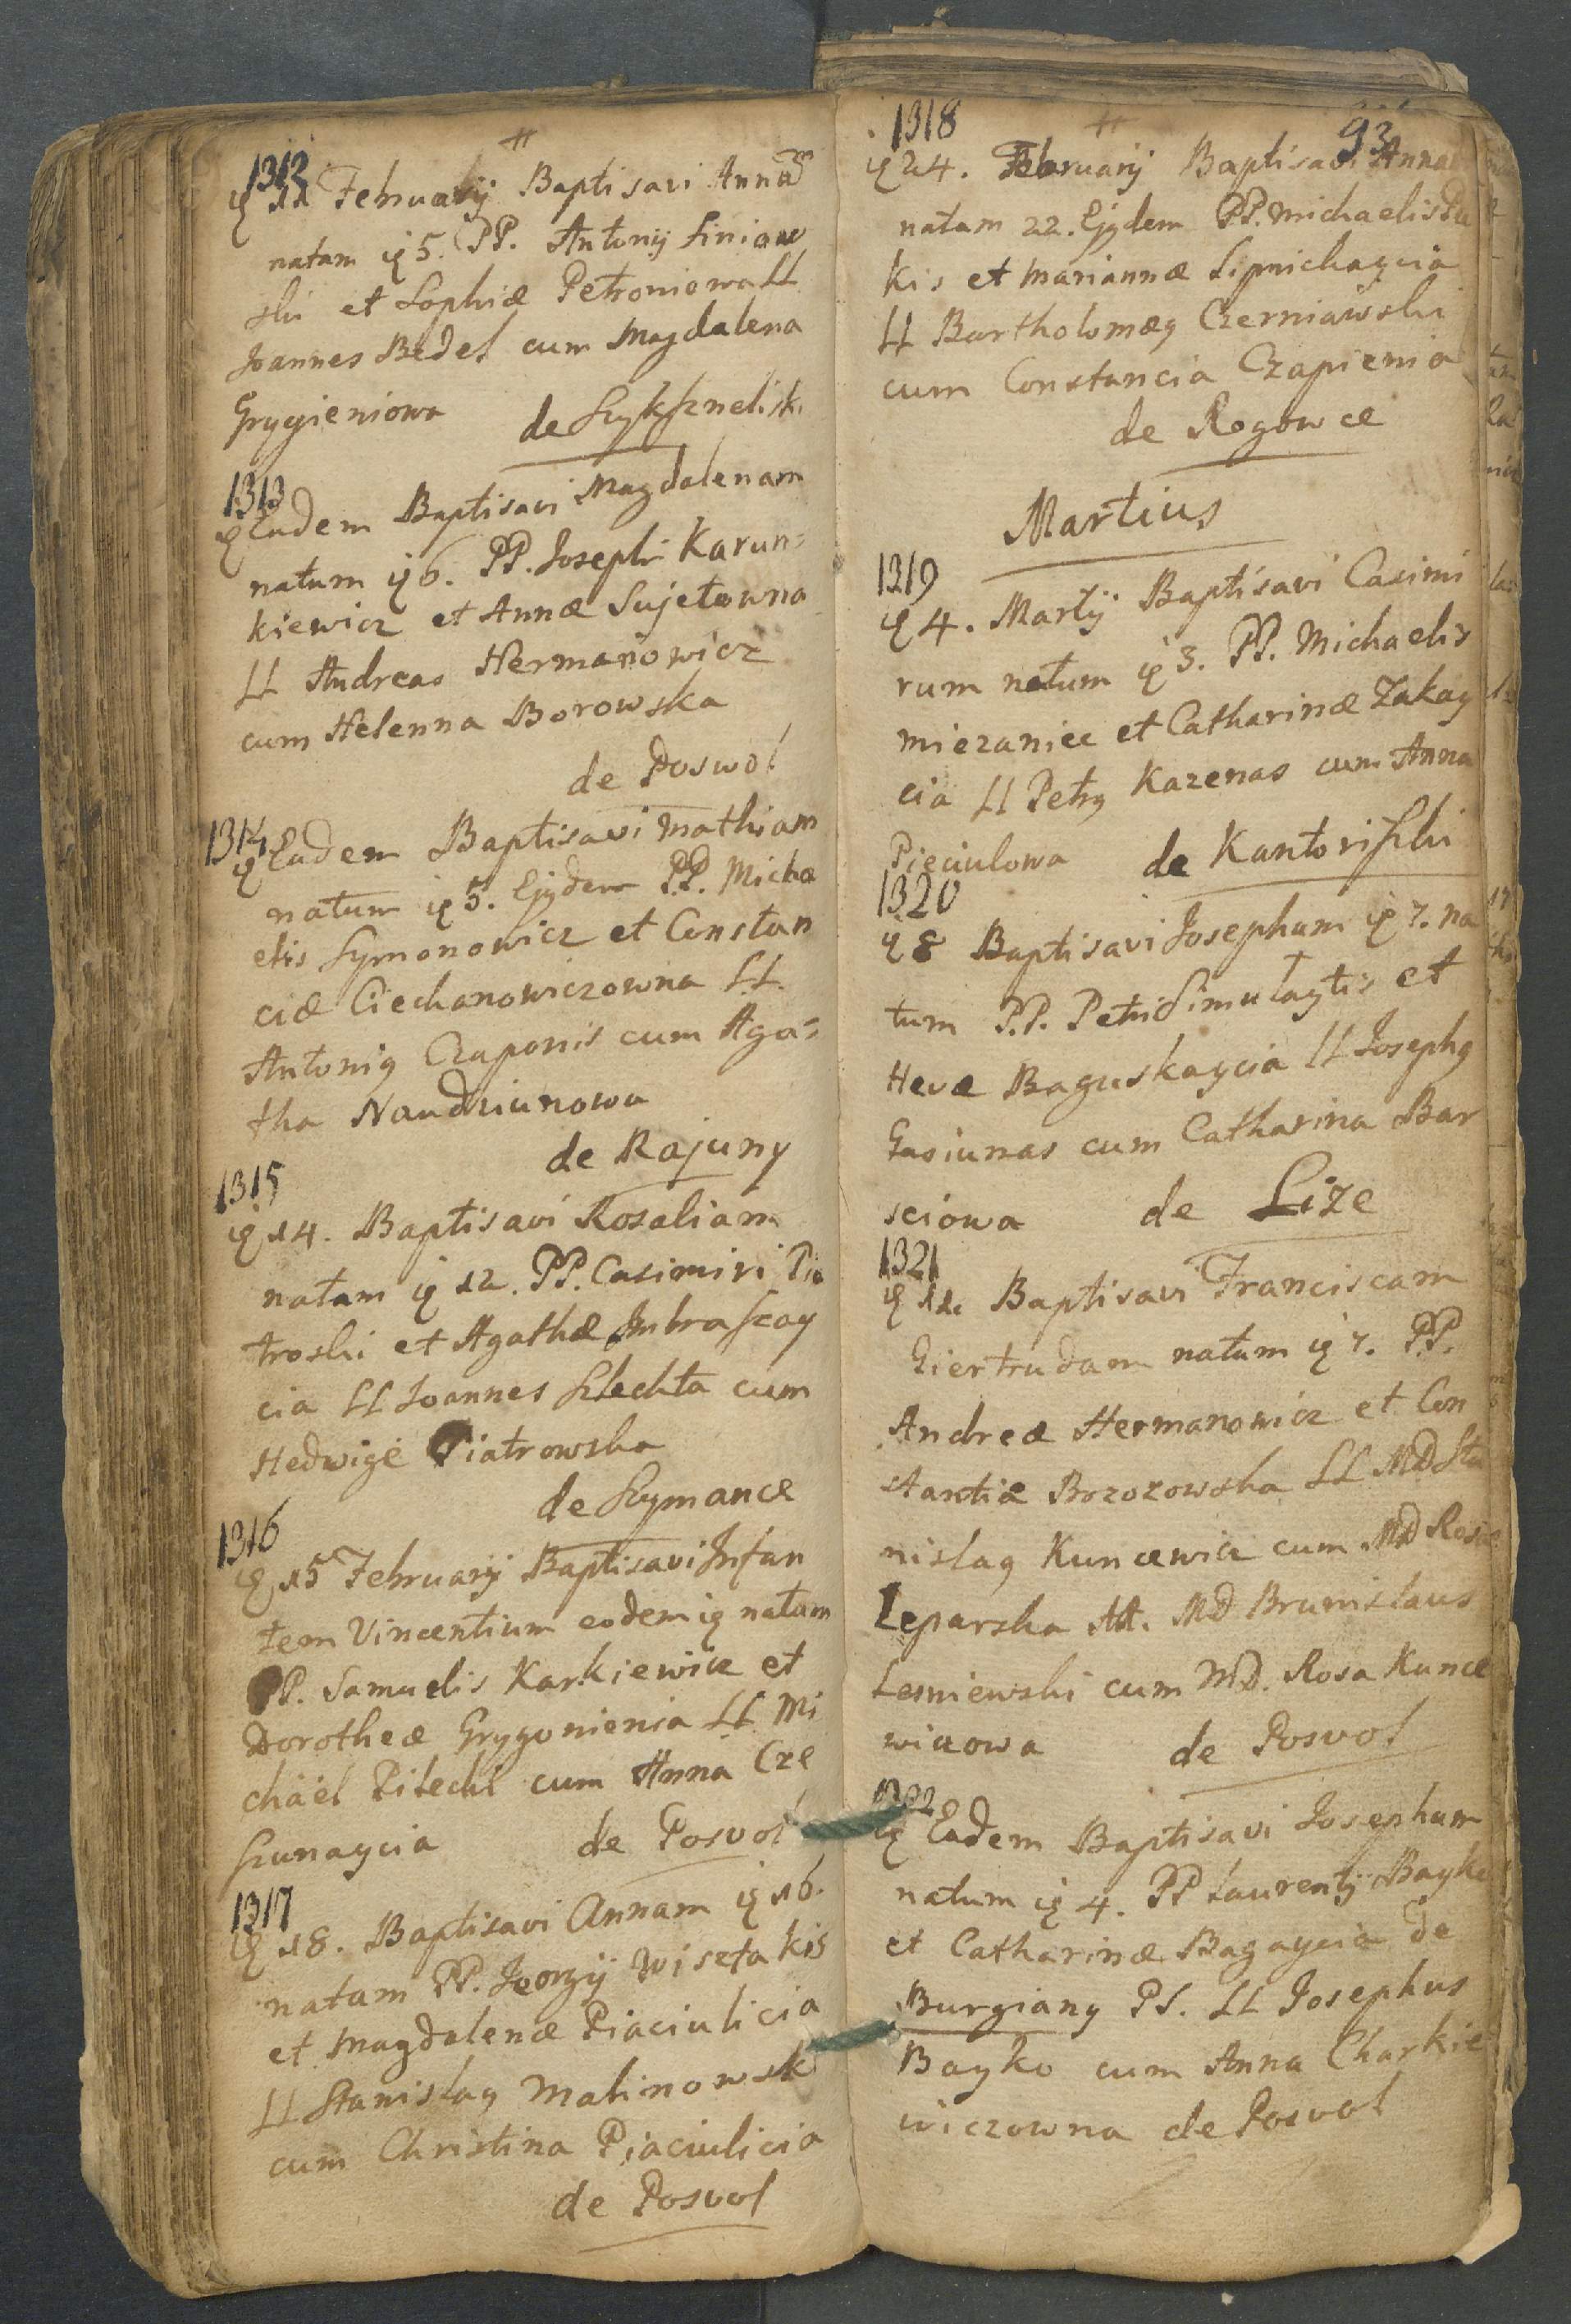 1312
11 February Baptisavi Annam
natam 5. PP. Antonij Siniaw
ski et Sophiæ Petroniowa LL
Joannes Bedel cum Magdalena
Grygieniowa de Szykszneliszki
1313
Eadem Baptisavi Magdalenam
natam 6. PP. Josephi Karun=
kiewicz et Annæ Sujetowna
LL Andreas Hermanowicz
cum Helenna Borowska
de Poswol
1314
Eadem Baptisavi Mathiam
natum 5. Ejusdem P.P. Micha
elis Symonowicz et Constan
ciæ Ciechanowiczowna LL.
Antonig Czaponis cum Aga=
tha Naudziunowa
de Rajuny
1315
14. Baptisavi Rosaliam
natam 12. PP. Casimiri Pia
troski et Agathæ Jubraszay
cia LL Joannes Szlechta cum
Hedwige Piatrowska
de Szymance
1316
15 February Baptisavi Infan
tem Vincentium eodem natum
PP. Samuelis Karkiewicz et
Dorotheæ Grygonienia LL Mi
chäel Pilechi cum Anna Cze
szunaycia de Posvol
1317
18. Baptisavi Annam 16.
natam PP. Georgij Wisztakis
et Magdalenæ Piaciulicia
LL Stanislag Malinowsk
cum Christina Piaciulicia
de Posvol
93
1318
24. February Baptisavi Annam
natam 22. Ejgdem PP. Michaelis Pu
kis et Mariannæ Lipnickaycia
LL Bartholomæg Czerniawski
cum Constancia Czapienia
de Rogowce
Martius
1319
4. Martij Baptisavi Casimi
rum natum 3. PP. Michaelis
Miezaniec et Catharinæ Zakay
cia LL Petrg Kazenas cum Anna
Pieciulowa de Kantoriszki
1320
8 Baptisavi Josephum 7. na
tum P.P. Petri Simulaytis et
Hevæ Baguskaycia LL Josephg
Gasiunas cum Catharina Bar
sciowa de Lize
1321
Baptisavi Franciscam
Giertrudam natum 7. PP.
Andreæ Hermanowicz et Con
stantiæ Borozowska LL MD Sta
nislag Kuncewicz cum MD Rosa
Leparska Ast. MD Brunislaus
Lesniewski cum MD. Rosa Kunce
wiczowa de Posvol
1322
Eadem Baptisavi Josephum
natum 4. PP Laurentij Bayko
et Catharinæ Bagaycia de
Burgiany PS. LL Josephus
Bayko cum Anna Charkie
wiczowna de Posvol